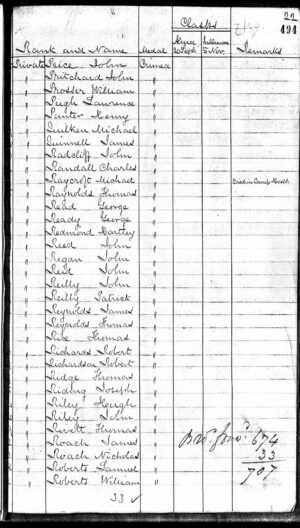 22
494
Clasps
Rank and Name Medal Alma 20 Sept Inkerman 5 Nov. Remarks
Private Price John Crimea
" Pritchard John "
" Prosser William "
" Pugh Lawrence "
" Punter Henry "
" Quilken Michael "
" Quinnell James "
" Radcliff John "
" Randall Charles "
" Raycroft Michael " Died in Camp
" Raynolds Thomas "
" Read George "
" Ready George "
" Redmond Hartley "
" Reed John "
" Regan John "
" Reid John "
" Reilly John "
" Reilly Patrick "
" Reynolds James "
" Reynolds Thomas "
" Rice Thomas "
" Richards Robert "
" Richardson Robert "
" Ridge Thomas "
" Riding Joseph "
" Riley Hugh "
" Riley John "
" Rivett Thomas " 674
" Roach James " 33
" Roach Nicholas " 707
" Roberts Samuel "
" Roberts William "
33 ✓